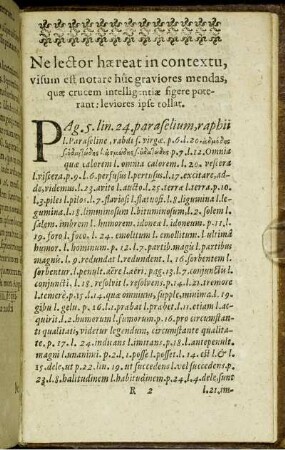 Ne lector hæreat in contextu,
visum est notare hûc graviores mendas,
quæ crucem intelligentiæ figere pote-
rant: leviores ipse tollat.
PAg. 5. lin. 24. paraselium, raphii
l. Paraseline, rabdi s. virgæ. p. 6. l. 20.
p. 7. l. 12. Omnia
quæ calorem l. omnia calorem. l. 20. viscera
l. viscera. p. 9. l. 6. perfusus l. pertusus. l. 17. excitare, ad-
do, videmus. l. 23. arito l. aucto. l. 25. terra l. terra. p. 10.
l. 3. piles l. pilos. l. 7. flariosi l. flatuosi. l. 8. ligumina l. le-
gumina. l. 18. limminosum l. bituminosum. l. 2. solem l.
salem. imbrem l. humorem. idonea l. idoneum. p. 11. l.
19. foro l. foco. l. 24. evolitum l. evolitum. l. ultima
humor. l. hominum. p. 12. l. 7. partib. magis l. partibus
magis. l. 9. redundat l. redundent. l. 16. sorbentem l.
sorbentur. l. penult. aëre l. aëri. pag. 13. l. 7. conjunctiü l.
conjuncti. l. 18. resolvit l. resolvens. p. 14. l. 21. tremore
l. temerè. p. 15. l. 14. quæ omnium, supple, minima. l. 19.
gibu l. gelu. p. 16. l. 1. probat l. prabet. l. 11. etiam l. ac-
quirit. l. 12. humorum l. fumorum. p. 16. pro circumstan-
ti qualitati, videtur legendum, circumstante qualita-
te. p. 17. l. 24. induans l. imitans. p. 18. l. antepenult.
magni l. unanivi. p. 22. l. 1. posse l. posset. l. 14. est l. & l.
15. dele, ut p. 22. lin. 19. ut succedens l. vel succedens. p.
23. l. 8. halitudinem l. habitudinem. p. 24. l. 4. dele, sunt
R 2 l. 21. im-